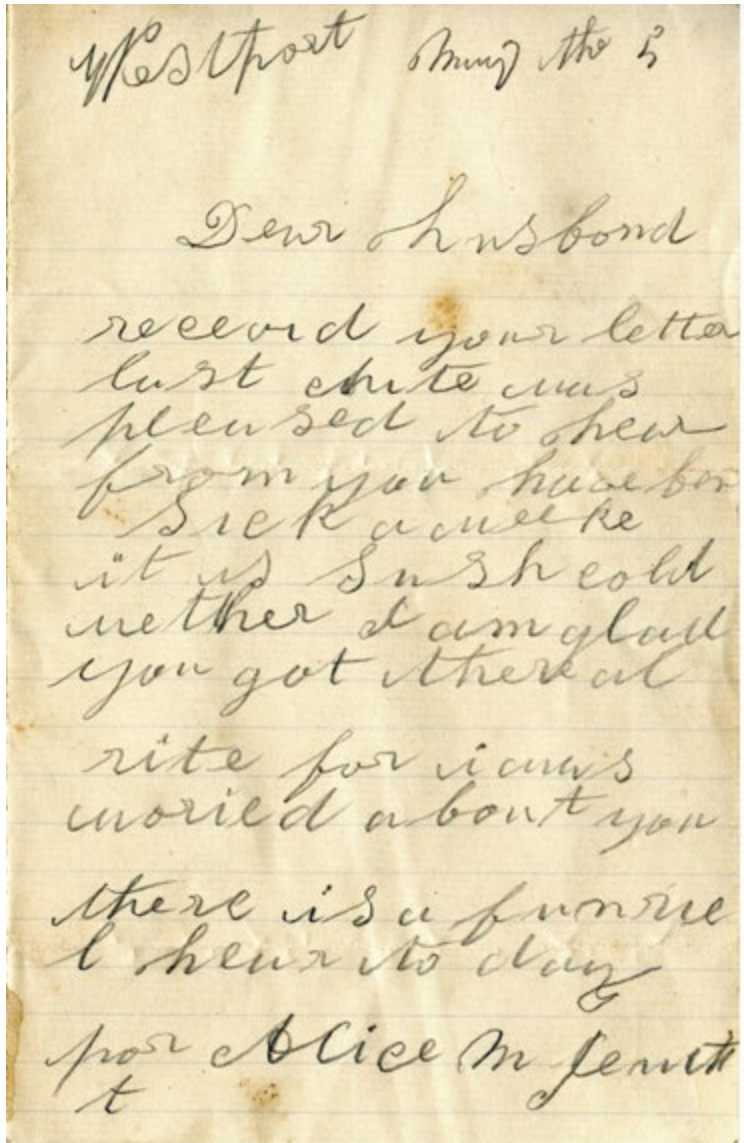 Westport May the 5
Dear husbond
receevid your letter
last nite was
pleased to hear
from you have ben
sick a weeke
it is sush cold
wether I am glad
you got there al
rite for i was
woried about you
there is a funrue
l hear to day
por Alice M Jewett
t